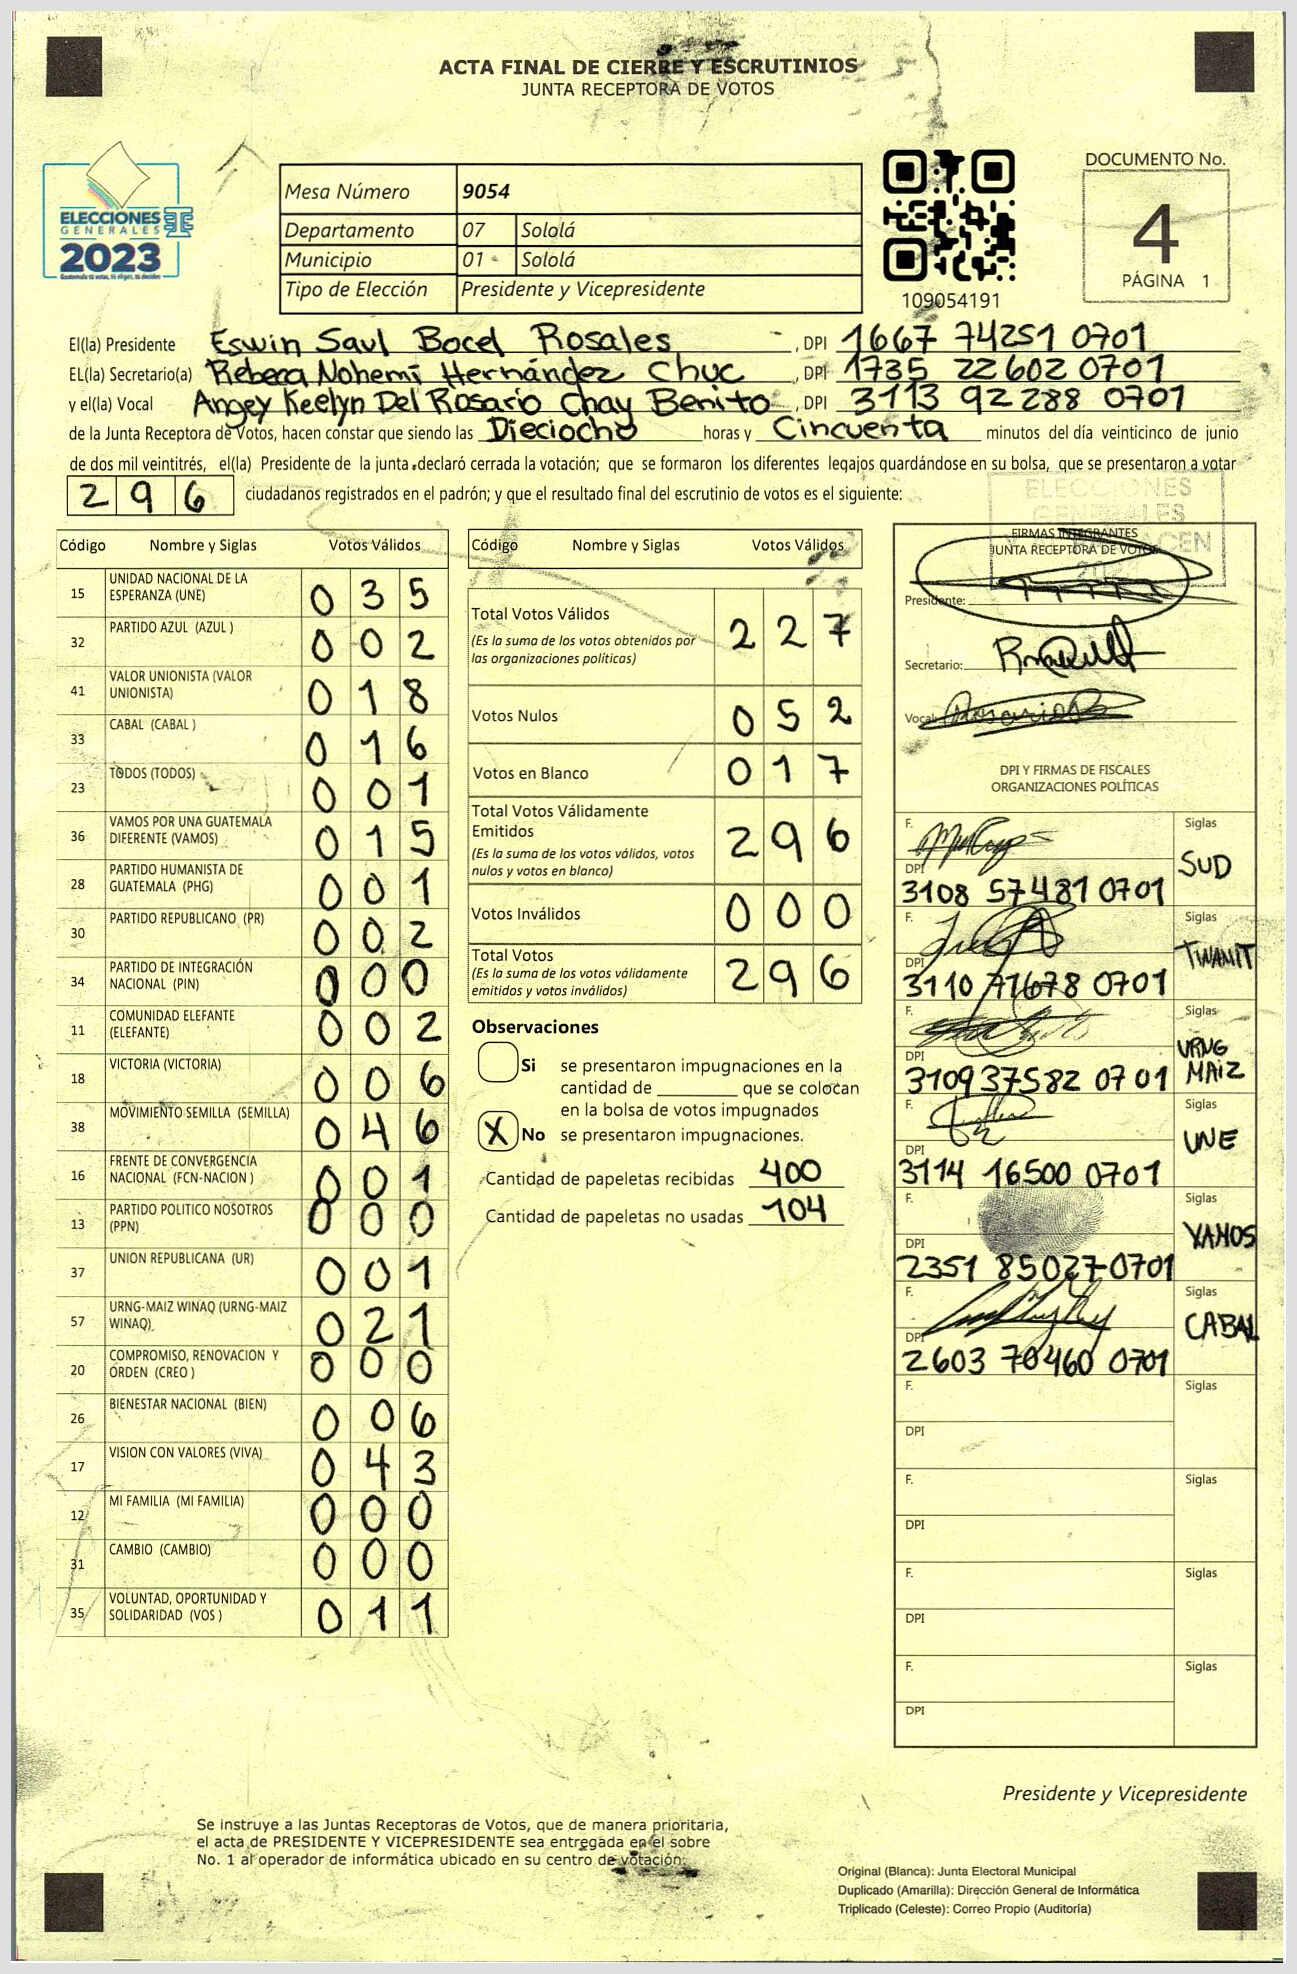 ACTA FINAL DE CIERRE Y ESCRUTINIOS
JUNTA RECEPTORA DE VOTOS
ELECCIONES
GENERALES
2023
Mesa Número 9054
Departamento 07 Sololá
Municipio 01 Sololá
Tipo de Elección Presidente y Vicepresidente
109054191
DOCUMENTO No.
4
PÁGINA 1
El(la) Presidente Eswin Saul Bocel Rosales, DPI 1667 74251 0701
EL(la) Secretario(a) Rebeca Nohemí Hernández Chuc, DPI 1735 22602 0701
y el(la) Vocal Angey Keelyn Del Rosario Chay Benito, DPI 3113 92288 0701
de la Junta Receptora de Votos, hacen constar que siendo las Dieciocho horas y Cincuenta minutos del día veinticinco de junio
de dos mil veintitrés, el(la) Presidente de la junta declaró cerrada la votación; que se formaron los diferentes legajos quardándose en su bolsa, que se presentaron a votar
296 ciudadanos registrados en el padrón; y que el resultado final del escrutinio de votos es el siguiente:
Código Nombre y Siglas Votos Válidos
15 UNIDAD NACIONAL DE LA ESPERANZA (UNE) 035
32 PARTIDO AZUL (AZUL ) 002
41 VALOR UNIONISTA (VALOR UNIONISTA) 018
33 CABAL (CABAL ) 016
23 TODOS (TODOS) 001
36 VAMOS POR UNA GUATEMALA DIFERENTE (VAMOS) 015
28 PARTIDO HUMANISTA DE GUATEMALA (PHG) 001
30 PARTIDO REPUBLICANO (PR) 002
34 PARTIDO DE INTEGRACIÓN NACIONAL (PIN) 000
11 COMUNIDAD ELEFANTE (ELEFANTE) 002
18 VICTORIA (VICTORIA) 006
38 MOVIMIENTO SEMILLA (SEMILLA) 046
16 FRENTE DE CONVERGENCIA NACIONAL (FCN-NACION ) 001
13 PARTIDO POLITICO NOSOTROS (PPN) 000
37 UNION REPUBLICANA (UR) 001
57 URNG-MAIZ WINAQ (URNG-MAIZ WINAQ) 021
20 COMPROMISO, RENOVACION Y ORDEN (CREO ) 000
26 BIENESTAR NACIONAL (BIEN) 006
17 VISION CON VALORES (VIVA) 043
12 MI FAMILIA (MI FAMILIA) 000
31 CAMBIO (CAMBIO) 000
35 VOLUNTAD, OPORTUNIDAD Y SOLIDARIDAD (VOS ) 011
Código Nombre y Siglas Votos Válidos
Total Votos Válidos 227
(Es la suma de los votos obtenidos por
las organizaciones políticas)
Votos Nulos 052
Votos en Blanco 017
Total Votos Válidamente
Emitidos 296
(Es la suma de los votos válidos, votos
nulos y votos en blanco)
Votos Inválidos 000
Total Votos 296
(Es la suma de los votos válidamente
emitidos y votos inválidos)
Observaciones
Si se presentaron impugnaciones en la
cantidad de ________ que se colocan
en la bolsa de votos impugnados
X No se presentaron impugnaciones.
Cantidad de papeletas recibidas 400
Cantidad de papeletas no usadas 104
ELECCIONES
GENERALES
FIRMAS INTEGRANTES
JUNTA RECEPTORA DE VOTOS
Presidente:
Secretario:
Vocal:
DPI Y FIRMAS DE FISCALES
ORGANIZACIONES POLÍTICAS
F. Siglas SUD
DPI 3108 57481 0701
F. Siglas TWAMIT
DPI 3110 71678 0701
F. Siglas URNG MAIZ
DPI 3109 37582 0701
F. Siglas UNE
DPI 3114 16500 0701
F. Siglas VAMOS
DPI 2351 85027 0701
F. Siglas CABAL
DPI 2603 70460 0701
F. Siglas
DPI
F. Siglas
DPI
F. Siglas
DPI
F. Siglas
DPI
Presidente y Vicepresidente
Se instruye a las Juntas Receptoras de Votos, que de manera prioritaria,
el acta de PRESIDENTE Y VICEPRESIDENTE sea entregada en el sobre
No. 1 al operador de informática ubicado en su centro de votación.
Original (Blanca): Junta Electoral Municipal
Duplicado (Amarilla): Dirección General de Informática
Triplicado (Celeste): Correo Propio (Auditoría)